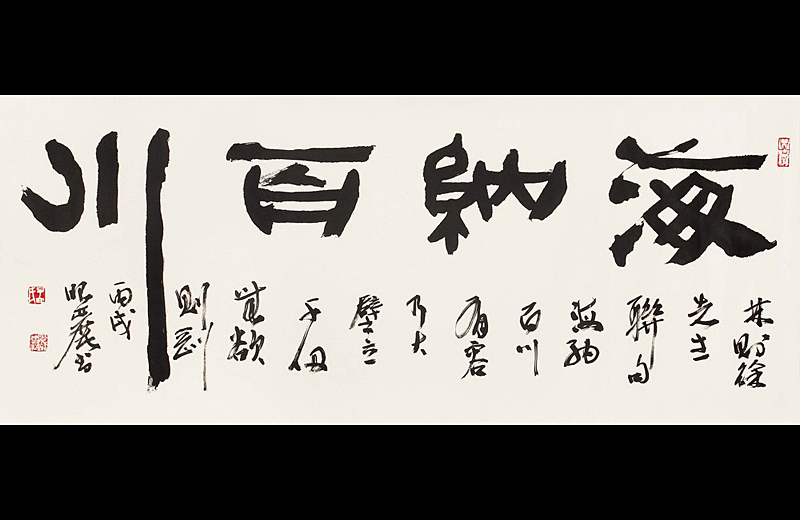 海納百川
林則徐
先生
聯句
海納
百川
有容
乃大
壁立
千仞
無欲
則剛
丙戌
書